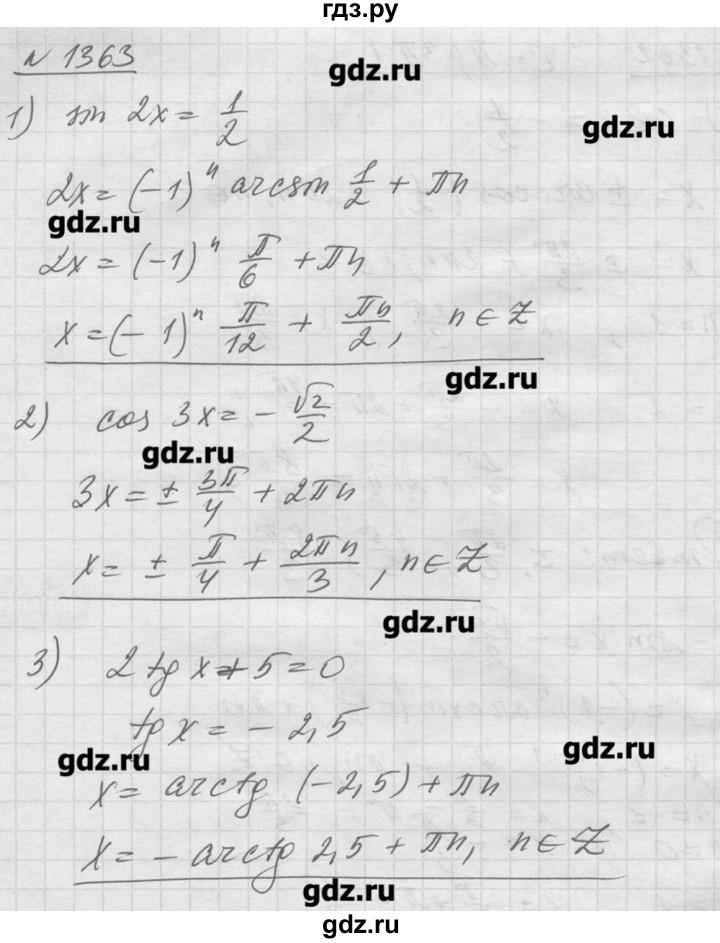 гдз.ру
№ 1363
gdz.ru
1) sin 2x = 1/2
gdz.ru
2x = (-1)^n arcsin 1/2 + πn
gdz.ru
2x = (-1)^n π/6 + πn
x = (-1)^n π/12 + πn/2, n ∈ Z
gdz.ru
2) cos 3x = - √2/2
gdz.ru
3x = ± 3π/4 + 2πn
x = ± π/4 + 2πn/3, n ∈ Z
gdz.ru
3) 2 tg x + 5 = 0
tg x = - 2,5
gdz.ru
gdz.ru
x = arctg (-2,5) + πn
x = - arctg 2,5 + πn, n ∈ Z
gdz.ru
gdz.ru